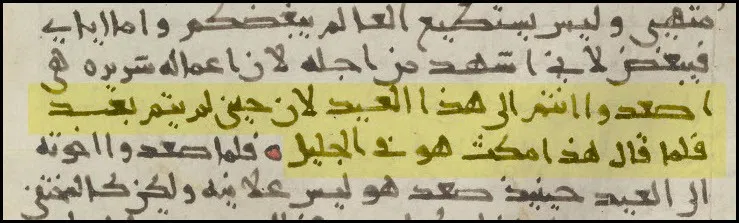 متهيى وليس يستطيع العالم يبغضكم واما اياي
فيبغض لاني اشهد من اجله لان اعماله شريره هي
اصعدوا انتم الى هذا العيد لان حيني لم يتم بعد
فلما قال هذا مكث هو في الجليل فلما صعدوا اخوته
الى العيد حينيذ صعد هو ليس علانيه ولكن كالمختفي